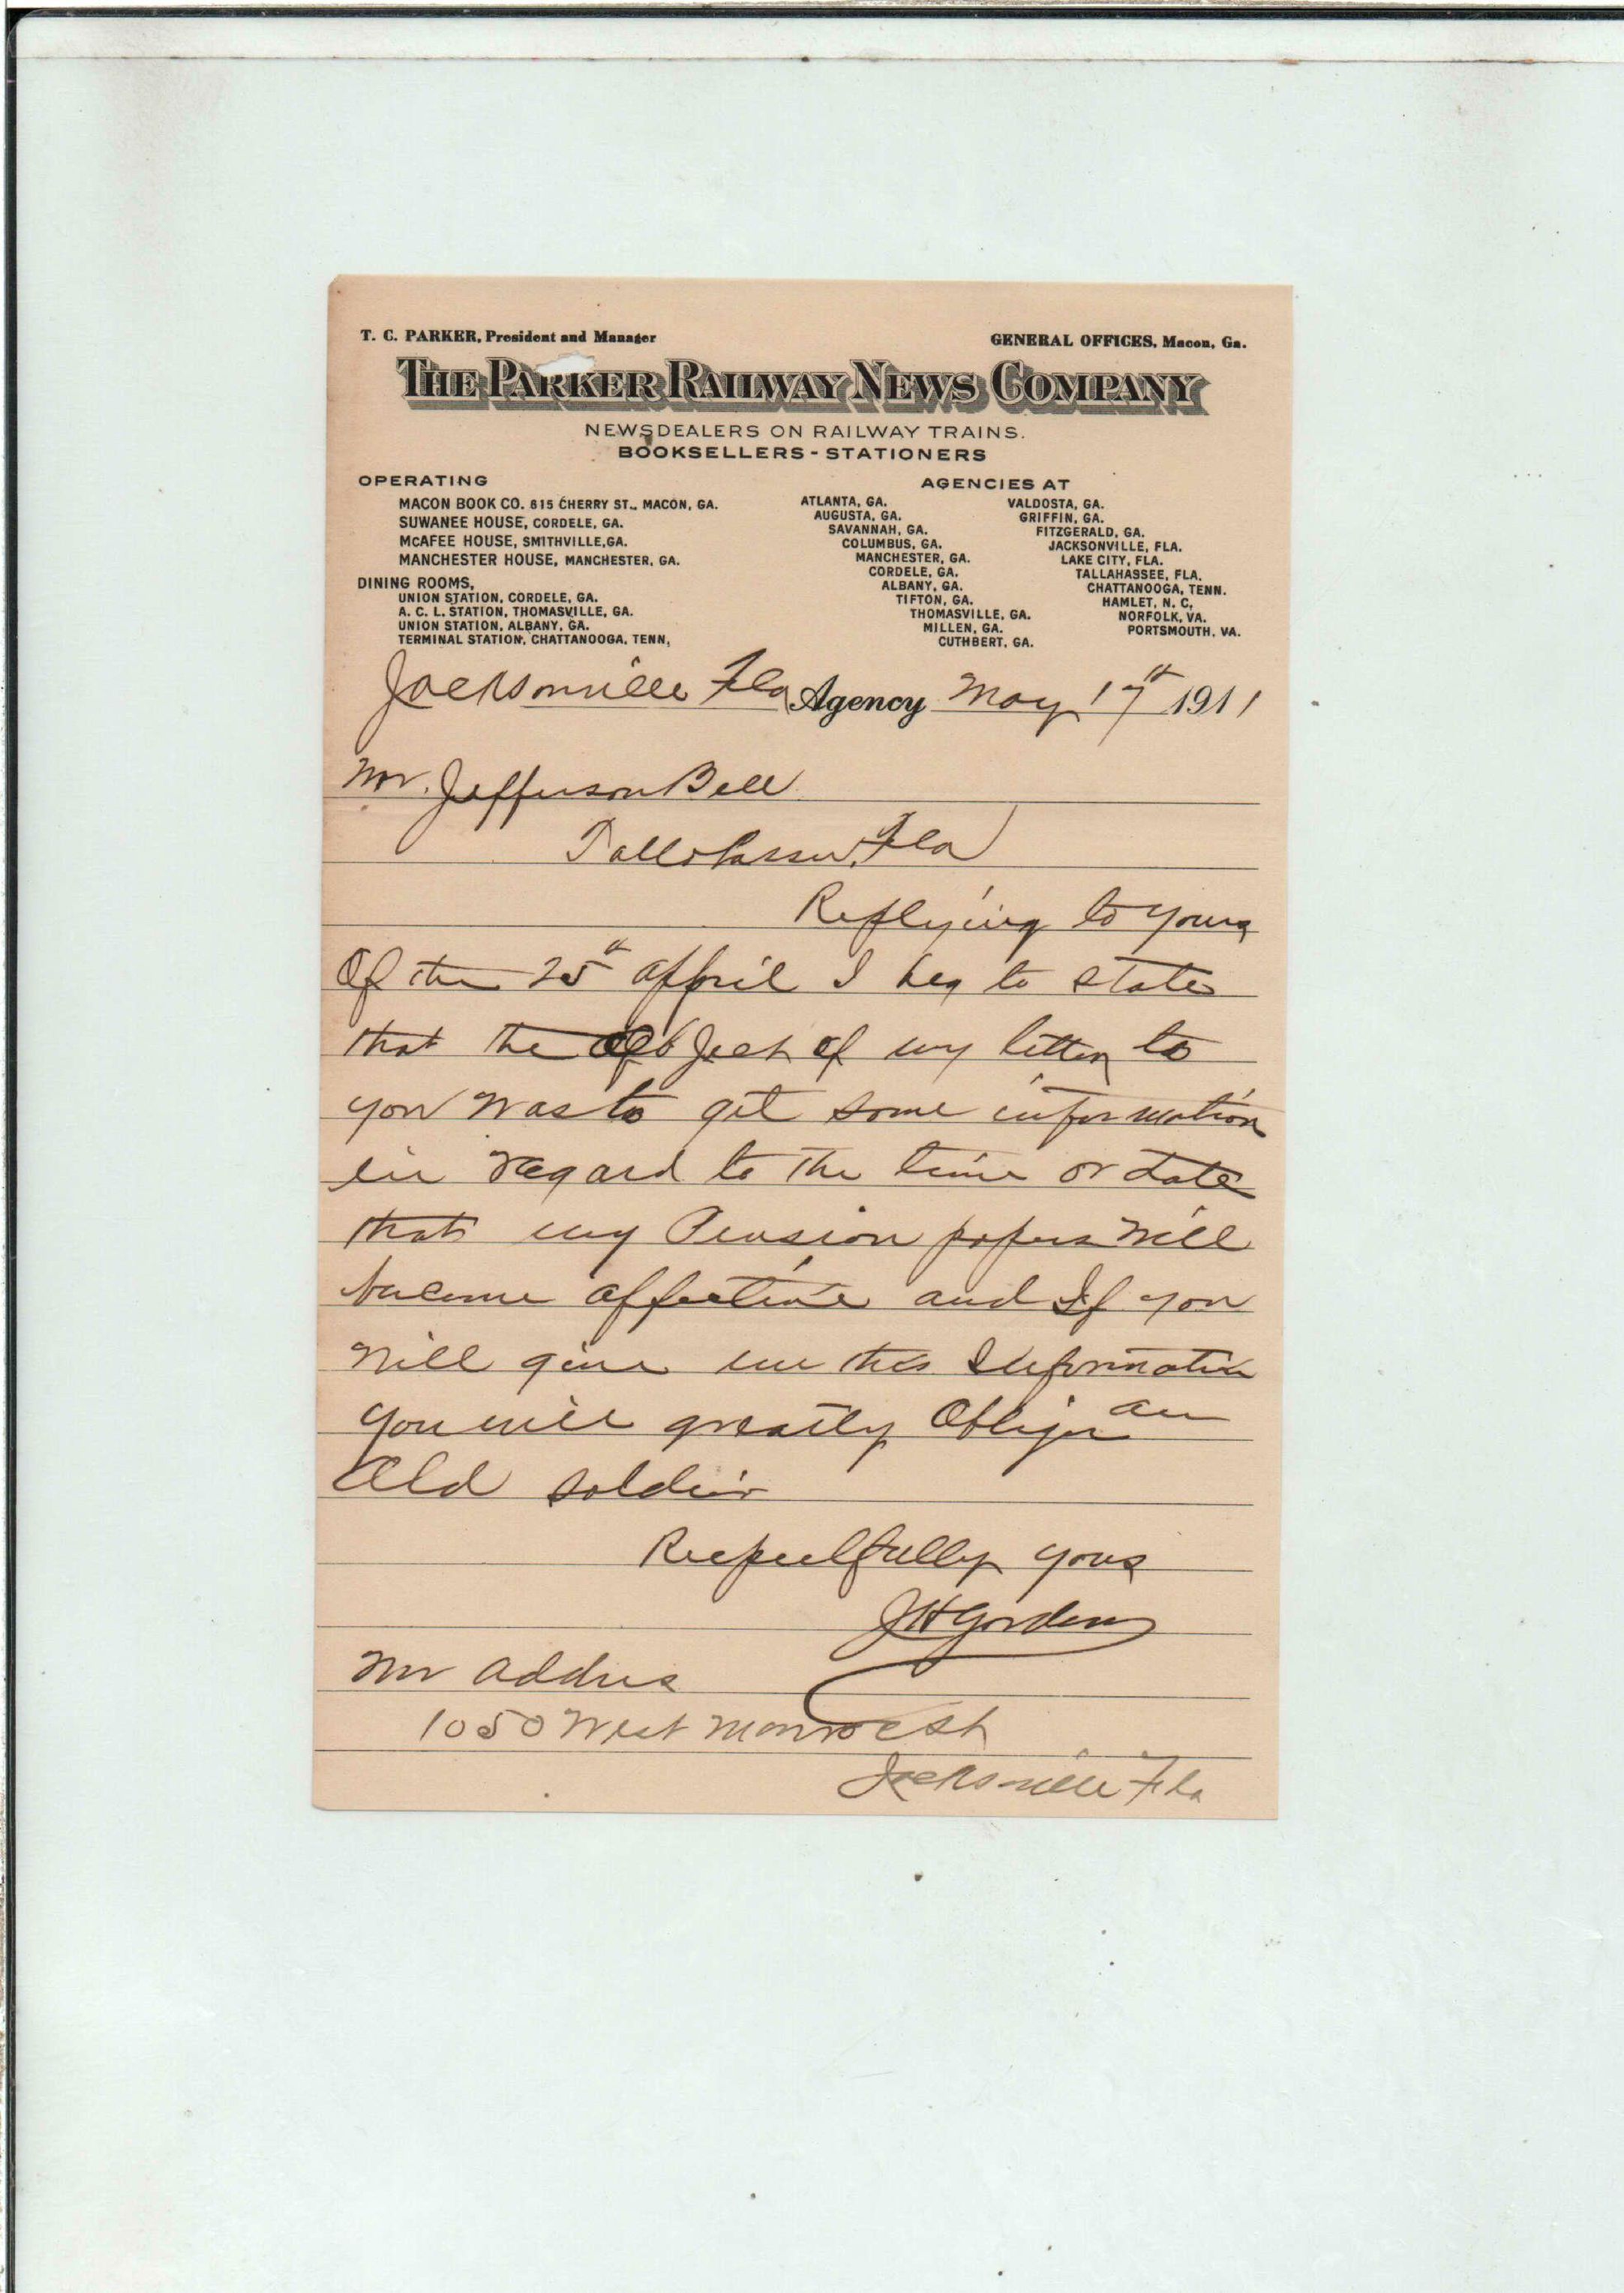 T. C. PARKER, President and Manager
GENERAL OFFICES, Macon, Ga.
THE PARKER RAILWAY NEWS COMPANY
NEWSDEALERS ON RAILWAY TRAINS.
BOOKSELLERS - STATIONERS
OPERATING
MACON BOOK CO. 615 CHERRY ST., MACON, GA.
SUWANEE HOUSE, CORDELE, GA.
MCAFEE HOUSE, SMITHVILLE, GA.
MANCHESTER HOUSE, MANCHESTER, GA.
DINING ROOMS,
UNION STATION, CORDELE, GA.
A. C. L. STATION, THOMASVILLE, GA.
UNION STATION, ALBANY, GA.
TERMINAL STATION, CHATTANOOGA, TENN,
AGENCIES AT
ATLANTA, GA.
AUGUSTA, GA.
SAVANNAH, GA.
COLUMBUS, GA.
MANCHESTER, GA.
CORDELE, GA.
ALBANY, GA.
TIFTON, GA.
THOMASVILLE, GA.
MILLEN, GA.
CUTHBERT, GA.
VALDOSTA, GA.
GRIFFIN, GA.
FITZGERALD, GA.
JACKSONVILLE, FLA.
LAKE CITY, FLA.
TALLAHASSEE, FLA.
CHATTANOOGA, TENN.
HAMLET, N. C,
NORFOLK, VA.
PORTSMOUTH, VA.
Jacksonville Fla Agency May 17th 1911
Mr. Jefferson Bell
Tallahassee, Fla
Replying to yours
Of the 25th april I beg to state
that the object of my letter to
you was to get some information
in regard to the time or date
that my Pension papers will
become affective and If you
will give me this Information
you will greatly Oblige an
Old soldier
Respectfully yours
J H Gordon
My address
1050 West Monroe St
Jacksonville Fla